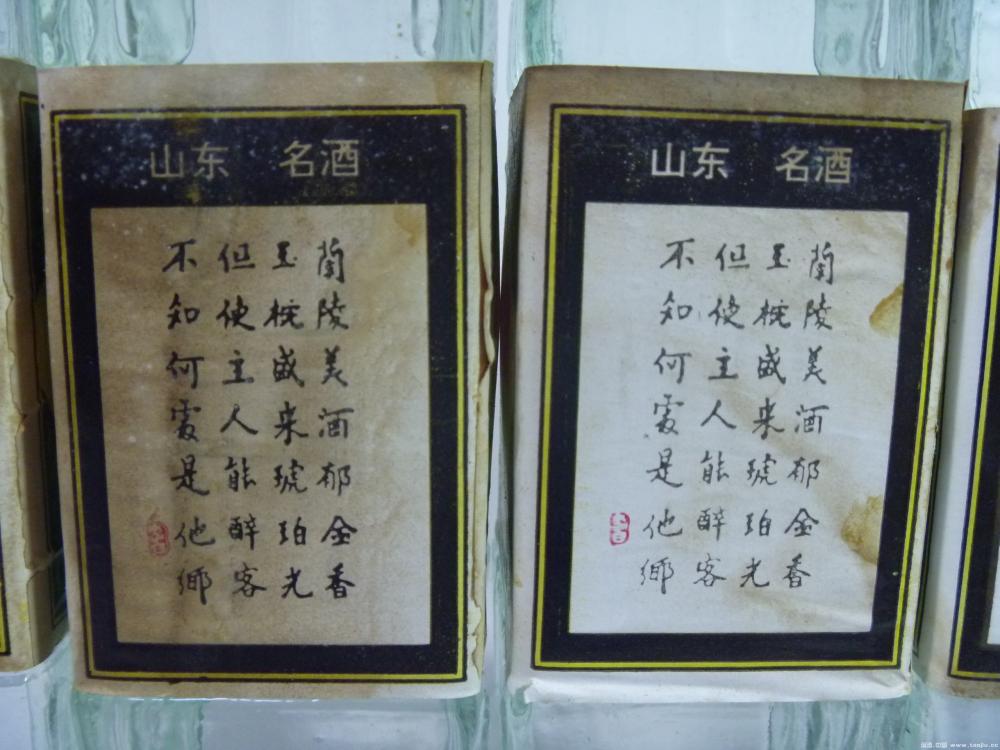 山东 名酒
蘭陵美酒郁金香
玉椀盛来琥珀光
但使主人能醉客
不知何處是他鄉
山东 名酒
蘭陵美酒郁金香
玉椀盛来琥珀光
但使主人能醉客
不知何處是他鄉